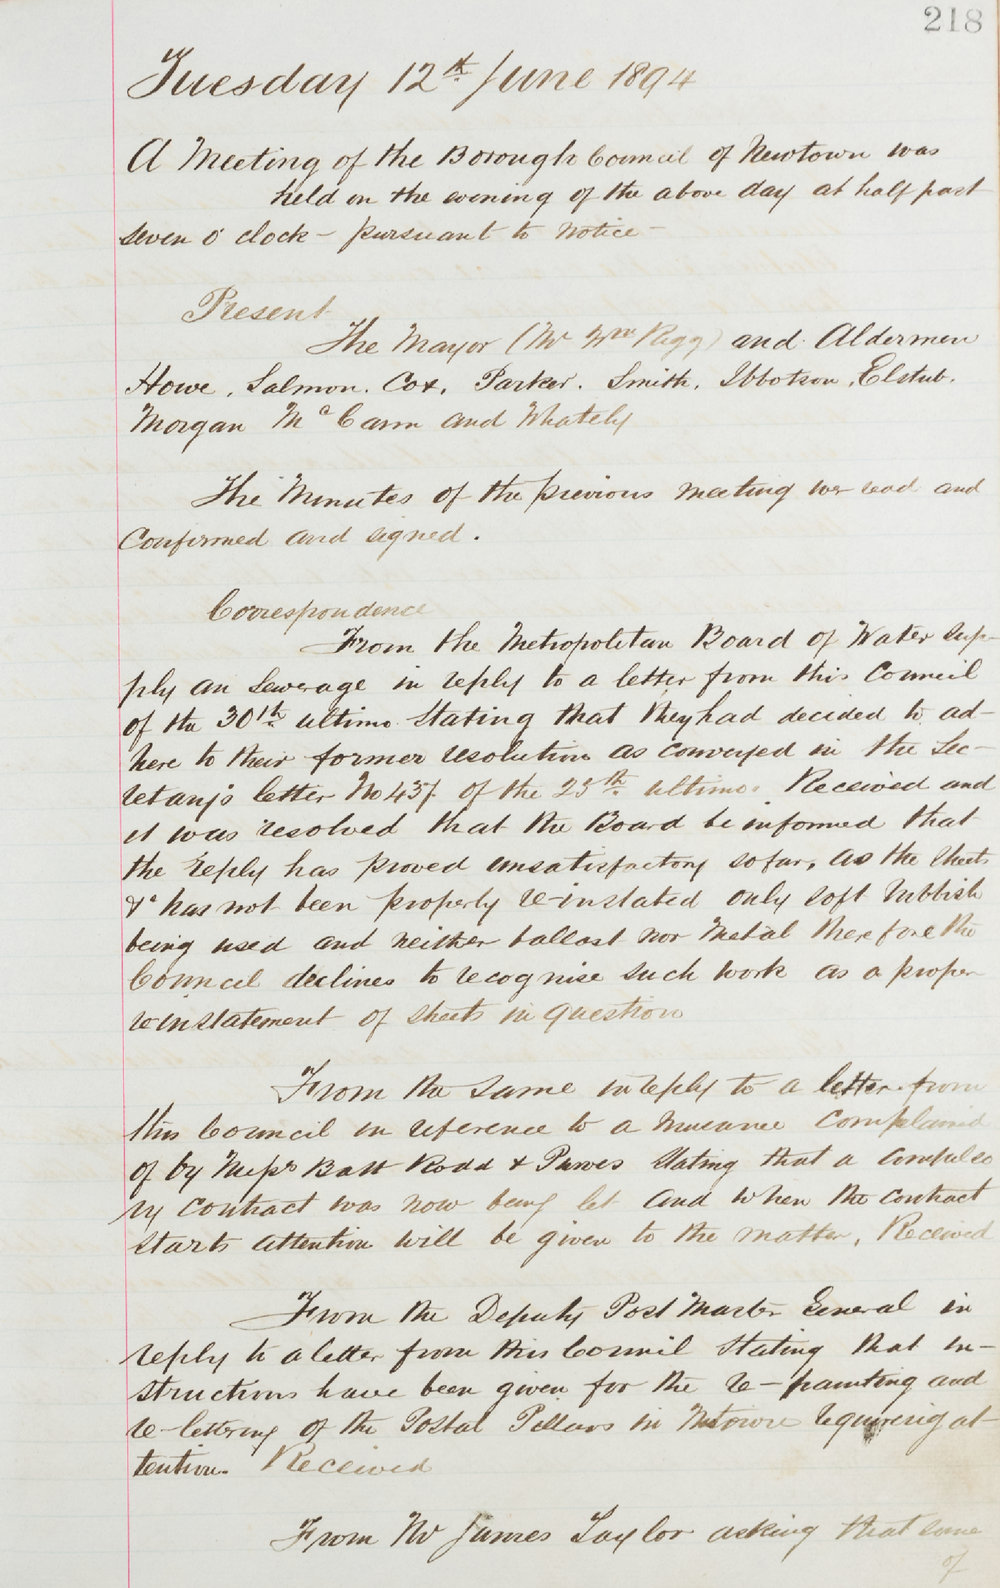 218
Tuesday 12th June 1894
A Meeting of the Borough Council of Newtown was
held on the evening of the above day at half past
seven o' clock - pursuant to notice -
Present
The Mayor (Mr Wm Rigg) and Aldermen
Howe, Salmon, Cox, Parker, Smith, Ibbotson, Elstub,
Morgan McCann and Whately
The Minutes of the previous meeting wer read and
Confirmed and signed.
Correspondence
From the Metropolitan Board of Water Sup-
ply an Sewerage in reply to a letter from this Council
of the 30th ultimo stating that they had decided to ad-
here to their former resolution as conveyed in the Sec-
retary's letter No 457 of the 25th ultimo. Received and
it was resolved that the Board be informed that
the reply has proved unsatisfactory so far, as the streets
&c has not been properly re-instated only soft rubbish
being used and neither ballast nor metal therefore the
Council declines to recognise such work as a proper
reinstatement of streets in question
From the same in reply to a letter from
this Council in reference to a nuisance complained
of by Messrs Batt Rodd & Purves stating that a compulso
ry contract was now being let and when the contract
starts attention will be given to the matter, Received
From the Deputy Post Master General in
reply to a letter from this Council stating that in-
structions have been given for the re-painting and
re-lettering of the Postal Pillars in Newtown requiring at
tention. Received
From Mr James Taylor asking that some
of